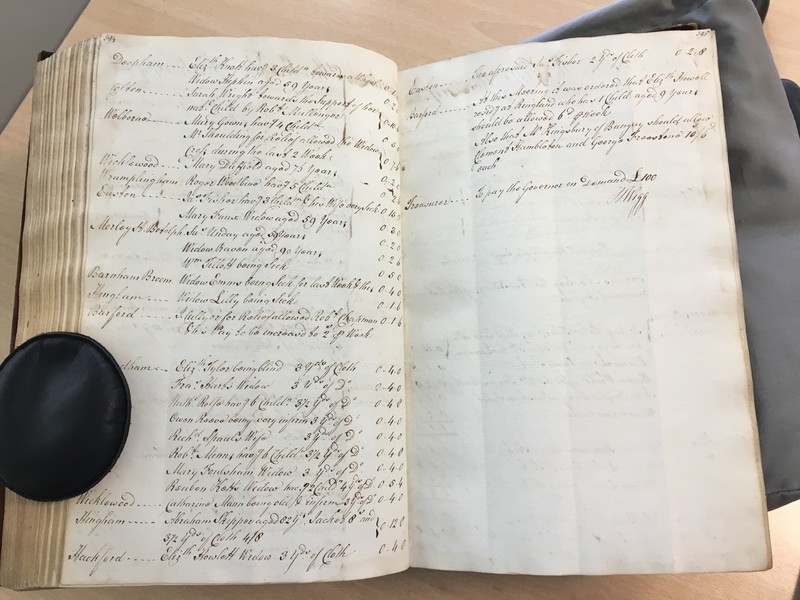 394
Deopham Eliz.th Knott hav.g 3 Child.n
Widow Hipkin aged 59 Years
Sarah Wright towards the Support of her
Child by Rob.t
Welborne Mary Gown hav.g 4 Child.n
M.r Shoulding for Relief allowed the Widow
during the last 2 Weeks
Wicklewood Mary Duffield aged 75 Years
Wramplingham Roger Woodbine hav.g 5 Child.n
Easton hav.g 3 Child.n & his Wife very Sick
Mary Faux Widow aged 59 Years 0 - 2 0
Morley St. Botolph Ja.s Unday aged 59 Years 0 - 2 0
Widow Bacon aged 90 Years 0 - 2 6
W.m Tillott being Sick 0 - 5 0
Barnham Broom Widow Emms being Sick for last Week & this 0 - 4 0
Hingham Widow Lilly being Sick 0 - 1 6
for Relief allowed Rob.t Chapman 0 - 1 6
& his Pay to be increased to 2.s p Week
Eliz.th Tylor being blind 3 Y.ds of Cloth 0 - 4 0
Fra.s Harts Widow 3 Y.ds of D.o 0 - 4 0
Nath. Rolfe hav.g 6 Child.n 3½ Y.ds of D.o 0 - 4 0
Owen Reeve being very infirm 3 Y.ds of D.o 0 - 4 0
Rich.d Spauls Wife 3 Y.ds of D.o 0 - 4 0
Rob.t Menns hav.g 6 Child.n 3½ Y.ds of D.o 0 - 4 0
Mary Frensham Widow 3 Y.ds of D.o 0 - 4 0
Reuben Ketts Widow hav.g 2 Child.n 4 Y.ds of D.o 0 - 5 4
Wicklewood Catharine Mann being old & infirm 3 Y.ds of D.o 0 - 4 0
Hingham Abraham Skipper aged 82 Y.rs Jacket 8.s and 0 - 12 8
3½ Y.ds of Cloth 4/8
Hackford Eliz.th Howlett Widow 3 Y.ds of Cloth 0 - 4 0
395
Easton The aforesaid Jn.o Fisher 2 Y.ds of Cloth 0 - 2 8
At this Meeting it was ordered that Eliz.th Howell
resid.g at Ringland who has 1 Child aged 9 Years
should be allowed 6.d p Week
Also that M.r Kingsbury of Bungay should allow
Clement Hambleton and George Freestone 10/6
each
Treasurer To pay the Governor on Demand £100